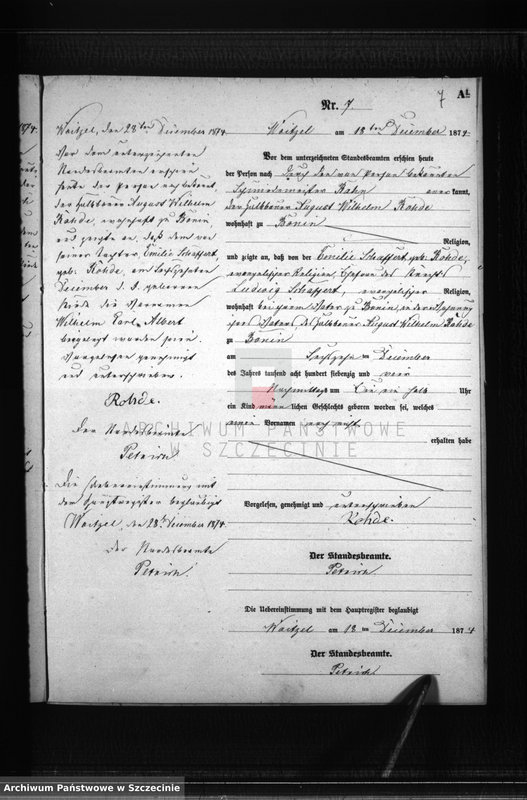 7
A1
Nr. 7.
Woitzel, den 28ten Dezember 1874.
Vor dem unterzeichneten
Standesbeamten erschien
heute der Person nach bekannt,
der Halbbauer August Wilhelm
Rohde, wohnhaft zu Bonin,
und zeigte an, daß dem von
seiner Tochter, Emilie Schaffert,
geb. Rohde, am sechszehnten
Dezember d. J. geborenen
Kinde die Vornamen
Wilhelm Carl Albert
beigelegt worden seien.
Vorgelesen, genehmigt
und unterschrieben.
Rohde.
Der Standesbeamte
Petrich
Die Uebereinstimmung mit
dem Hauptregister beglaubigt
Woitzel, den 28ten Dezember 1874.
Der Standesbeamte
Petrich.
Woitzel am 18ten Dezember 1874.
Vor dem unterzeichneten Standesbeamten erschien heute
der Person nach durch den von Person bekannten
Schmiedemeister Hahn anerkannt,
der Halbbauer August Wilhelm Rohde
wohnhaft zu Bonin
Religion,
und zeigte an, daß von der Emilie Schaffert, geb. Rohde,
evangelischer Religion, Ehefrau des Knechts
Ludwig Schaffert, evangelischer Religion,
wohnhaft bei ihrem Vater zu Bonin, in der
ihres Vaters, des Halbbauer August Wilhelm Rohde
zu Bonin
am Sechszehnten Dezember
des Jahres tausend acht hundert siebenzig und vier
Nachmittags um Uhr
ein Kind männlichen Geschlechts geboren worden sei, welches
einen Vornamen noch nicht
erhalten habe
Vorgelesen, genehmigt und unterschrieben
Rohde.
Der Standesbeamte.
Petrich.
Die Uebereinstimmung mit dem Hauptregister beglaubigt
Woitzel am 18ten Dezember 1874
Der Standesbeamte.
Petrich
ARCHIWUM PAŃSTWOWE
W SZCZECINIE
Archiwum Państwowe w Szczecinie